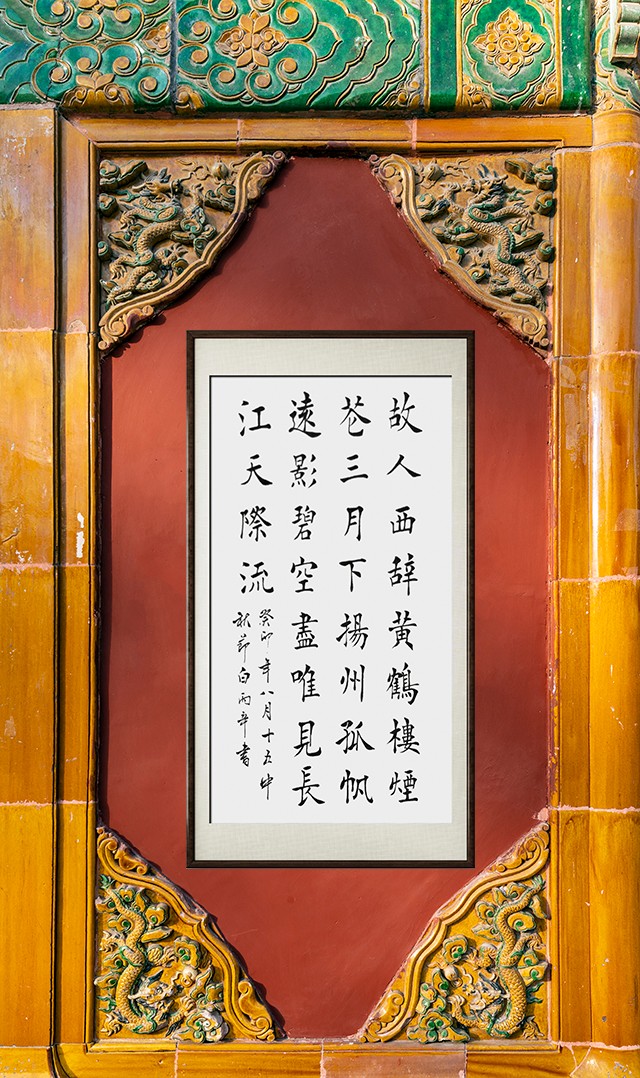 故人西辞黄鶴樓煙
花三月下揚州孤帆
遠影碧空盡唯見長
江天際流
癸卯年八月十五中
秋節白丙辛書